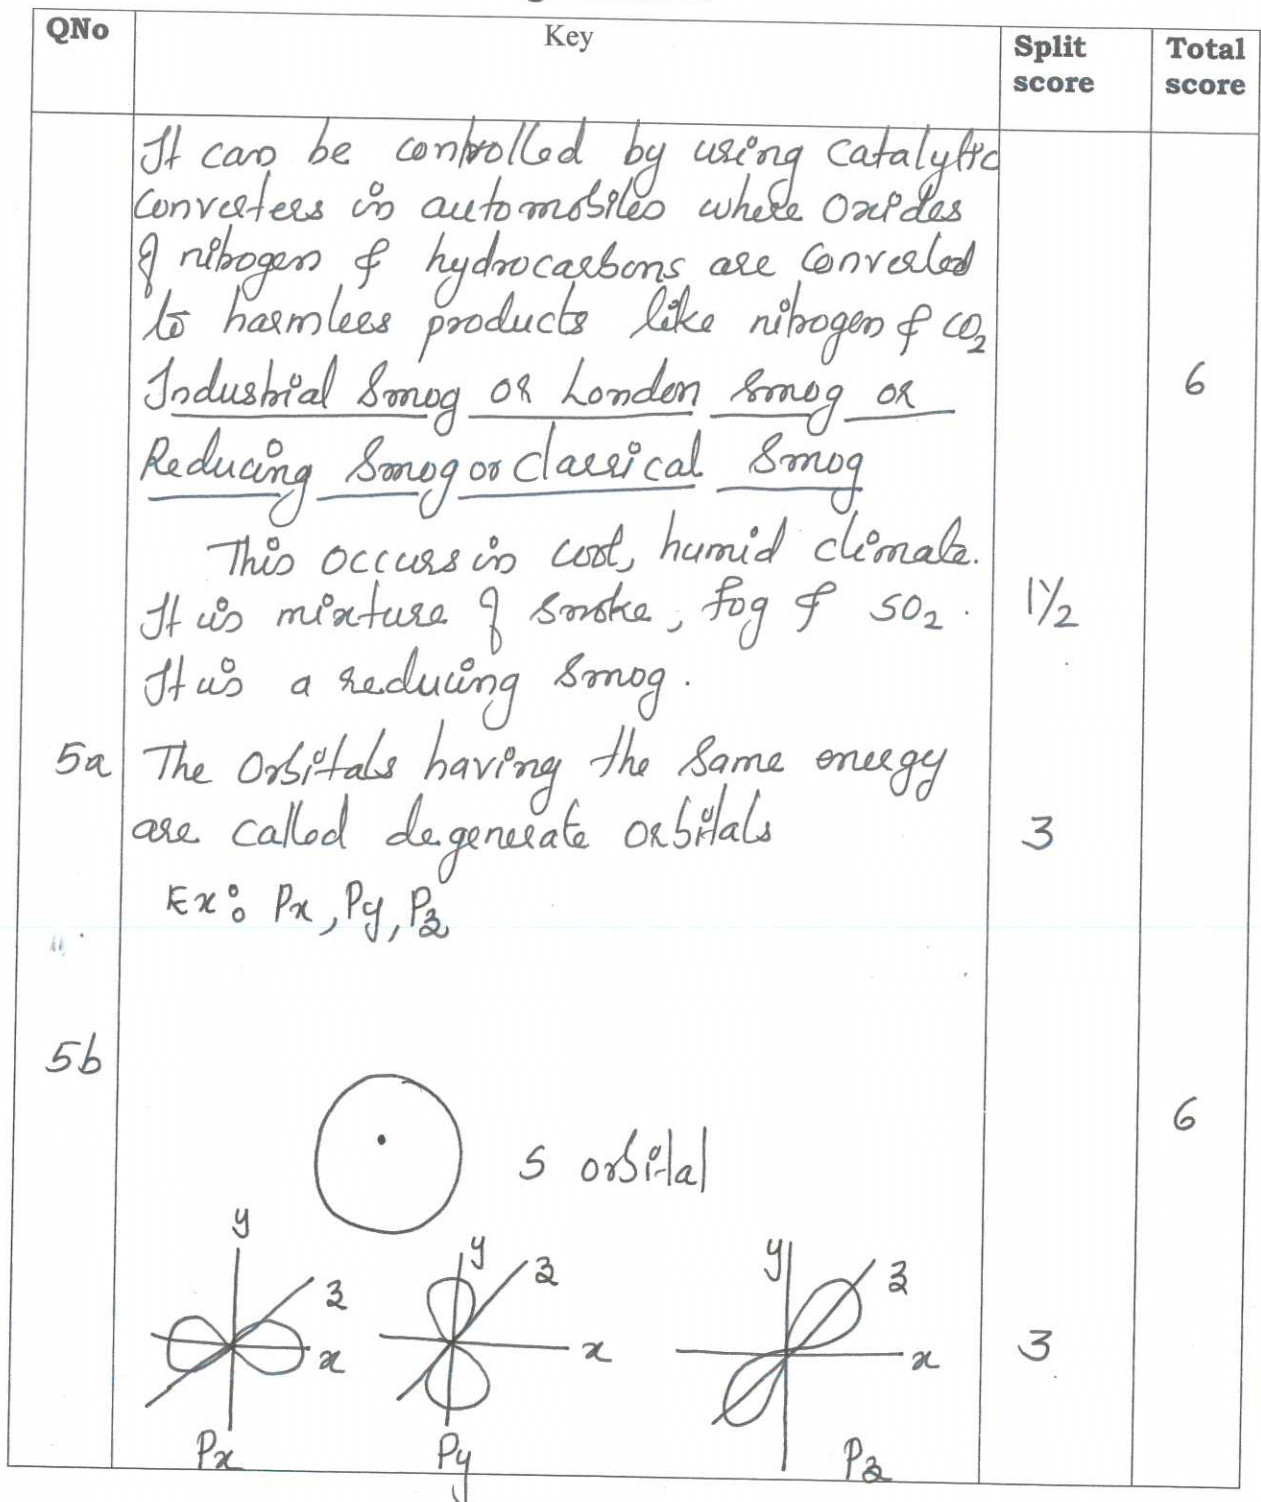 QNo Key Split score Total score
It can be controlled by using catalytic
converters in automobiles where oxides
of nitrogen & hydrocarbons are converted
to harmless products like nitrogen & CO₂
Industrial Smog or London Smog or 6
Reducing Smog or classical Smog
This occurs in cool, humid climate.
It is mixture of smoke, fog & SO₂. 1½
It is a reducing smog.
5a The Orbitals having the same energy
are called degenerate orbitals 3
Ex: Px, Py, Pz
5b
6
S orbital
y y y
z z z
x x x 3
Px Py Pz